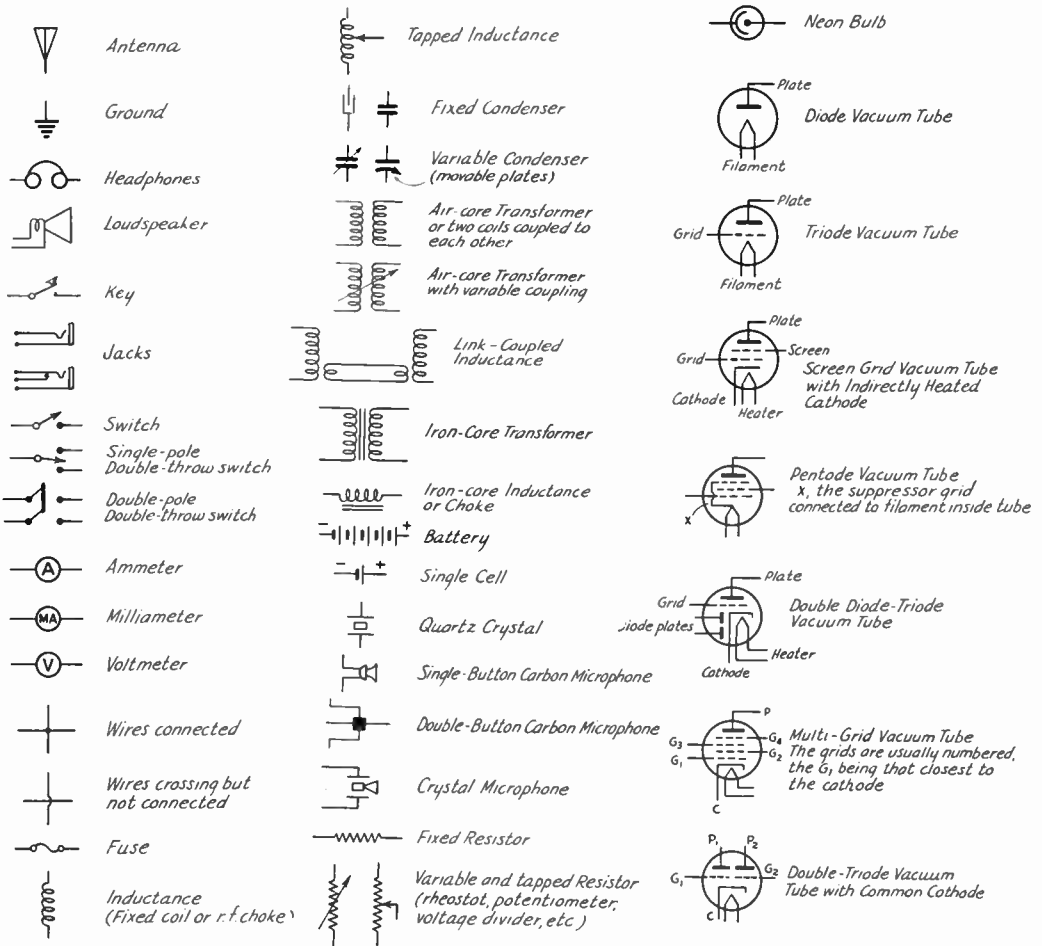 Antenna
Ground
Headphones
Loudspeaker
Key
Jacks
Switch
Single-pole
Double-throw switch
Double-pole
Double-throw switch
A
Ammeter
MA
Milliameter
V
Voltmeter
Wires connected
Wires crossing but
not connected
Fuse
Inductance
(Fixed coil or r.f. choke)
Tapped Inductance
Fixed Condenser
Variable Condenser
(movable plates)
Air-core Transformer
or two coils coupled to
each other
Air-core Transformer
with variable coupling
Link-Coupled
Inductance
Iron-Core Transformer
Iron-core Inductance
or Choke
- +
Battery
- +
Single Cell
Quartz Crystal
Single-Button Carbon Microphone
Double-Button Carbon Microphone
Crystal Microphone
Fixed Resistor
Variable and tapped Resistor
(rheostat, potentiometer,
voltage divider, etc)
Neon Bulb
Plate
Diode Vacuum Tube
Filament
Plate
Grid
Triode Vacuum Tube
Filament
Plate
Screen
Grid
Screen Grid Vacuum Tube
with Indirectly Heated
Cathode
Cathode
Heater
Pentode Vacuum Tube
x, the suppressor grid
connected to filament inside tube
x
Plate
Grid
Double Diode-Triode
Vacuum Tube
iode plates
Heater
Cathode
P
G3
G4
G1
G2
Multi-Grid Vacuum Tube
The grids are usually numbered,
the G1 being that closest to
the cathode
C
P1 P2
G1
G2
Double-Triode Vacuum
Tube with Common Cathode
C